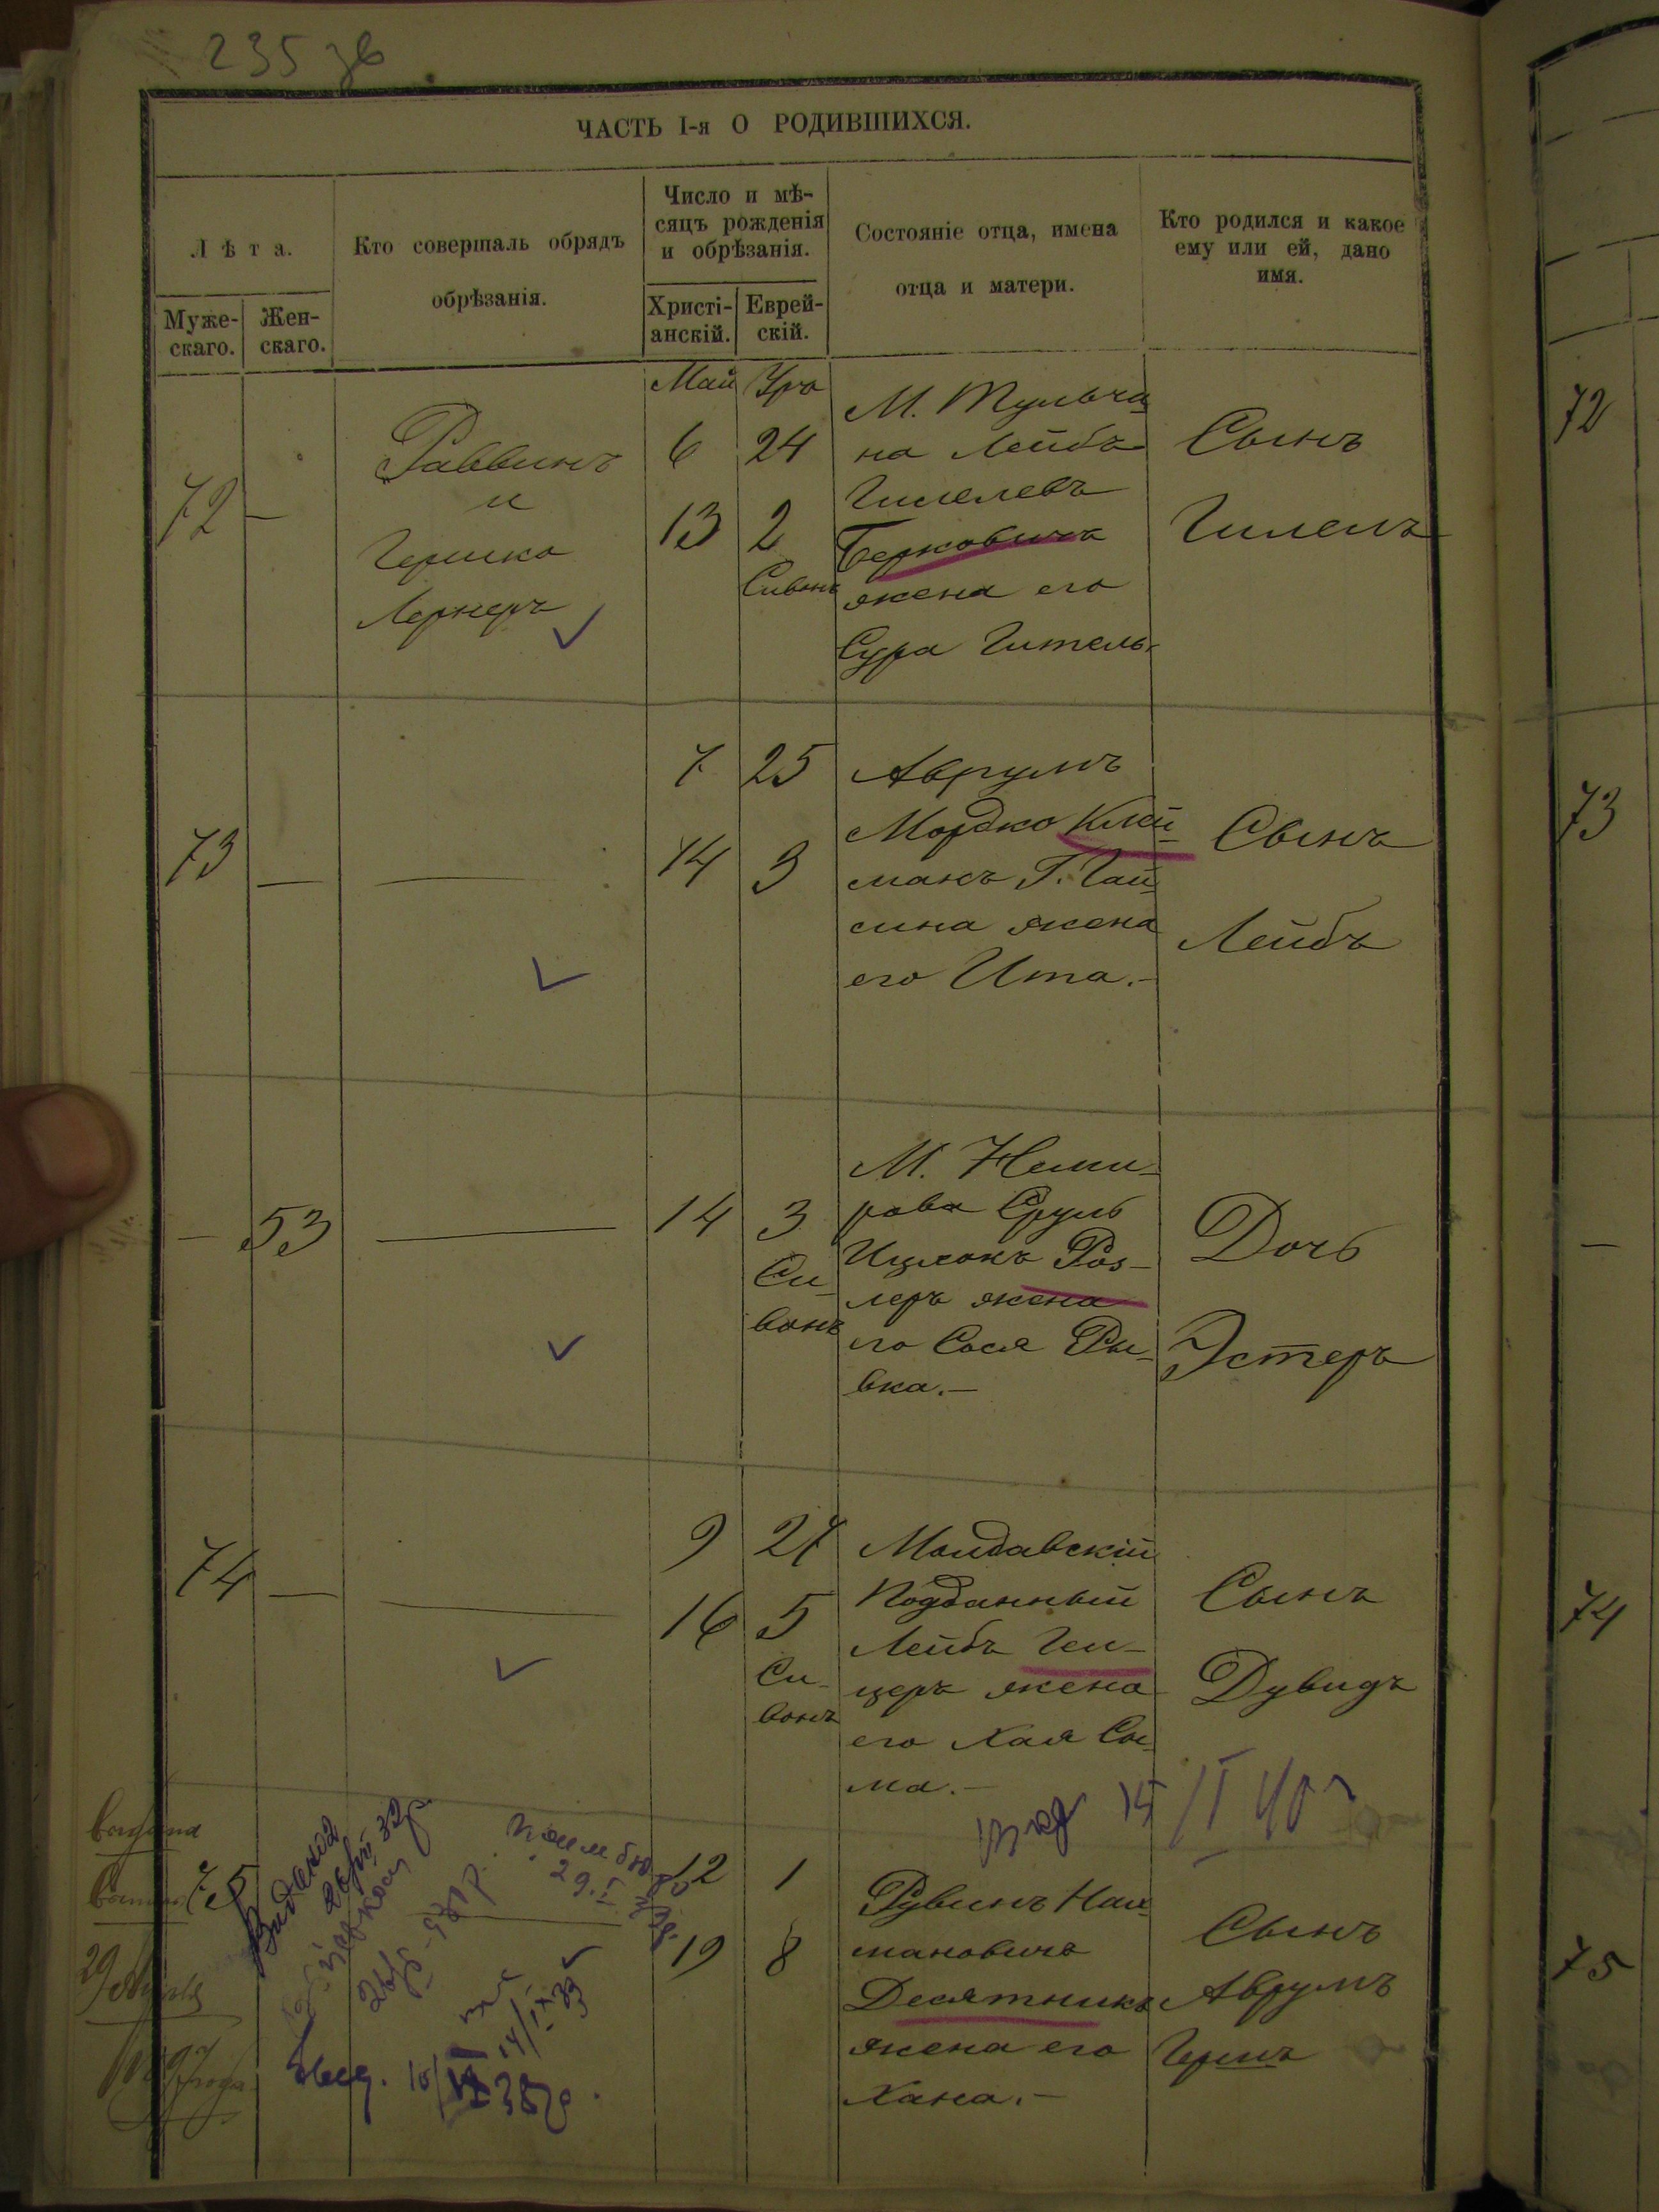 235 зв
ЧАСТЬ I-я О РОДИВШИХСЯ.
Лѣта.
Муже-
скаго.
Жен-
скаго.
Кто совершаль обрядъ
обрѣзанія.
Число и мѣ-
сяцъ рожденія
и обрѣзанія.
Христі-
анскій.
Еврей-
скій.
Состояніе отца, имена
отца и матери.
Кто родился и какое
ему или ей, дано
имя.
72
—
Раввинъ
и
Гершко
Лернеръ
Май
6
13
Іра
24
2
Сивонъ
М. Тульчи
на Лейбъ
Гилелевъ
Берковичъ
жена его
Сура Гитель
Сынъ
Гилелъ
73
—
7
14
25
3
Аврумъ
Мордко Клей
манъ Г. Гай
сина жена
его Ита.-
Сынъ
Лейбъ
—
53
14
3
Си-
вонъ
М. Неми-
рова Сруль
Ицхокъ Роз-
леръ жена
его Сося Ры-
вка.-
Дочь
Эстеръ
74
—
9
16
27
5
Си-
вонъ
Молдавскій
Подданный
Лейбъ Гел-
церъ жена
его Хая Сы-
ма.-
Сынъ
Дувидъ
15/II 40 г
75
12
19
1
8
Рувинъ Нах-
мановичъ
Десятникъ
жена его
Хана.-
Сынъ
Аврумъ
Гершъ
29
14/IX 33
72
73
—
74
75